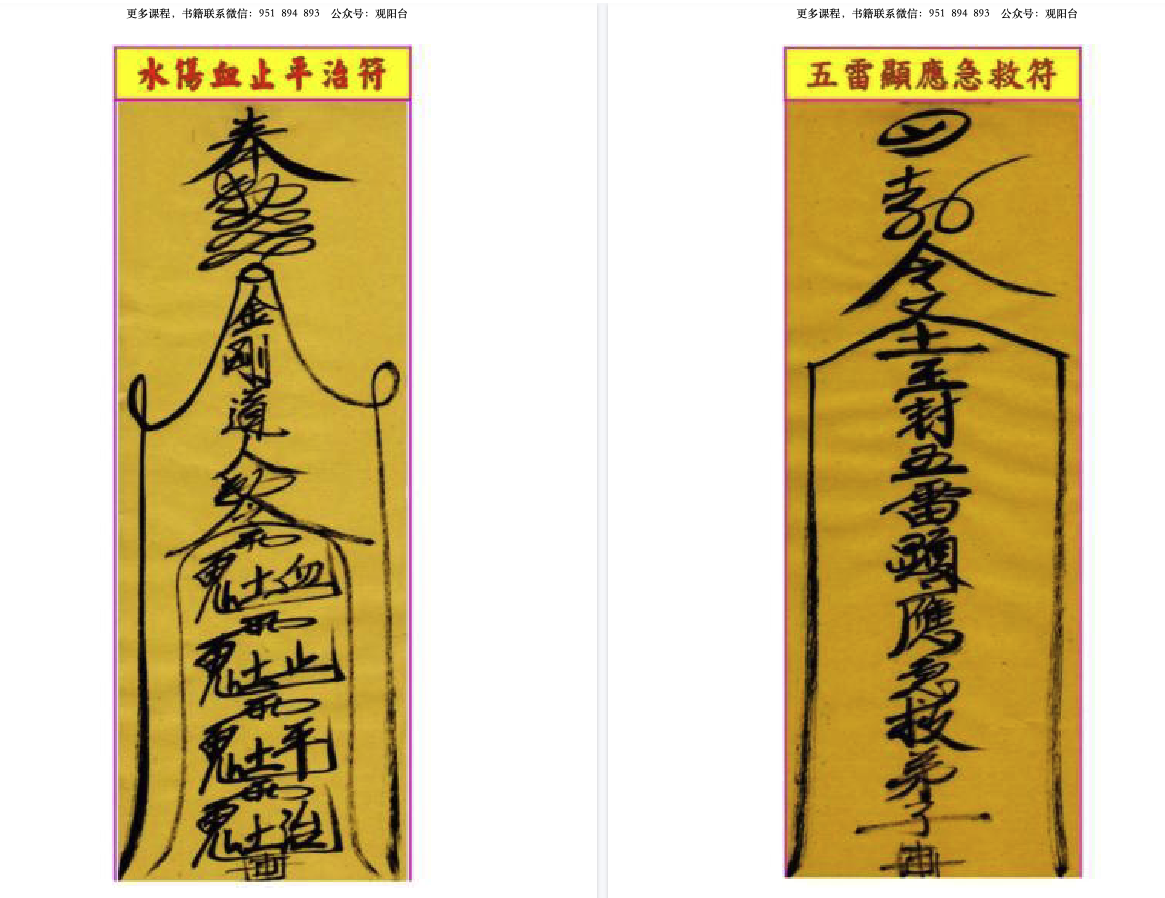 更多课程，书籍联系微信：951 894 893 公众号：观阳台
水傷血止平治符
奉
勅
金
剛
道
人
鬼 血
鬼 止
鬼 平
鬼 治
更多课程，书籍联系微信：951 894 893 公众号：观阳台
五雷顯應急救符
勅
令
玉
封
五
雷
顯
應
急
救
弟
子